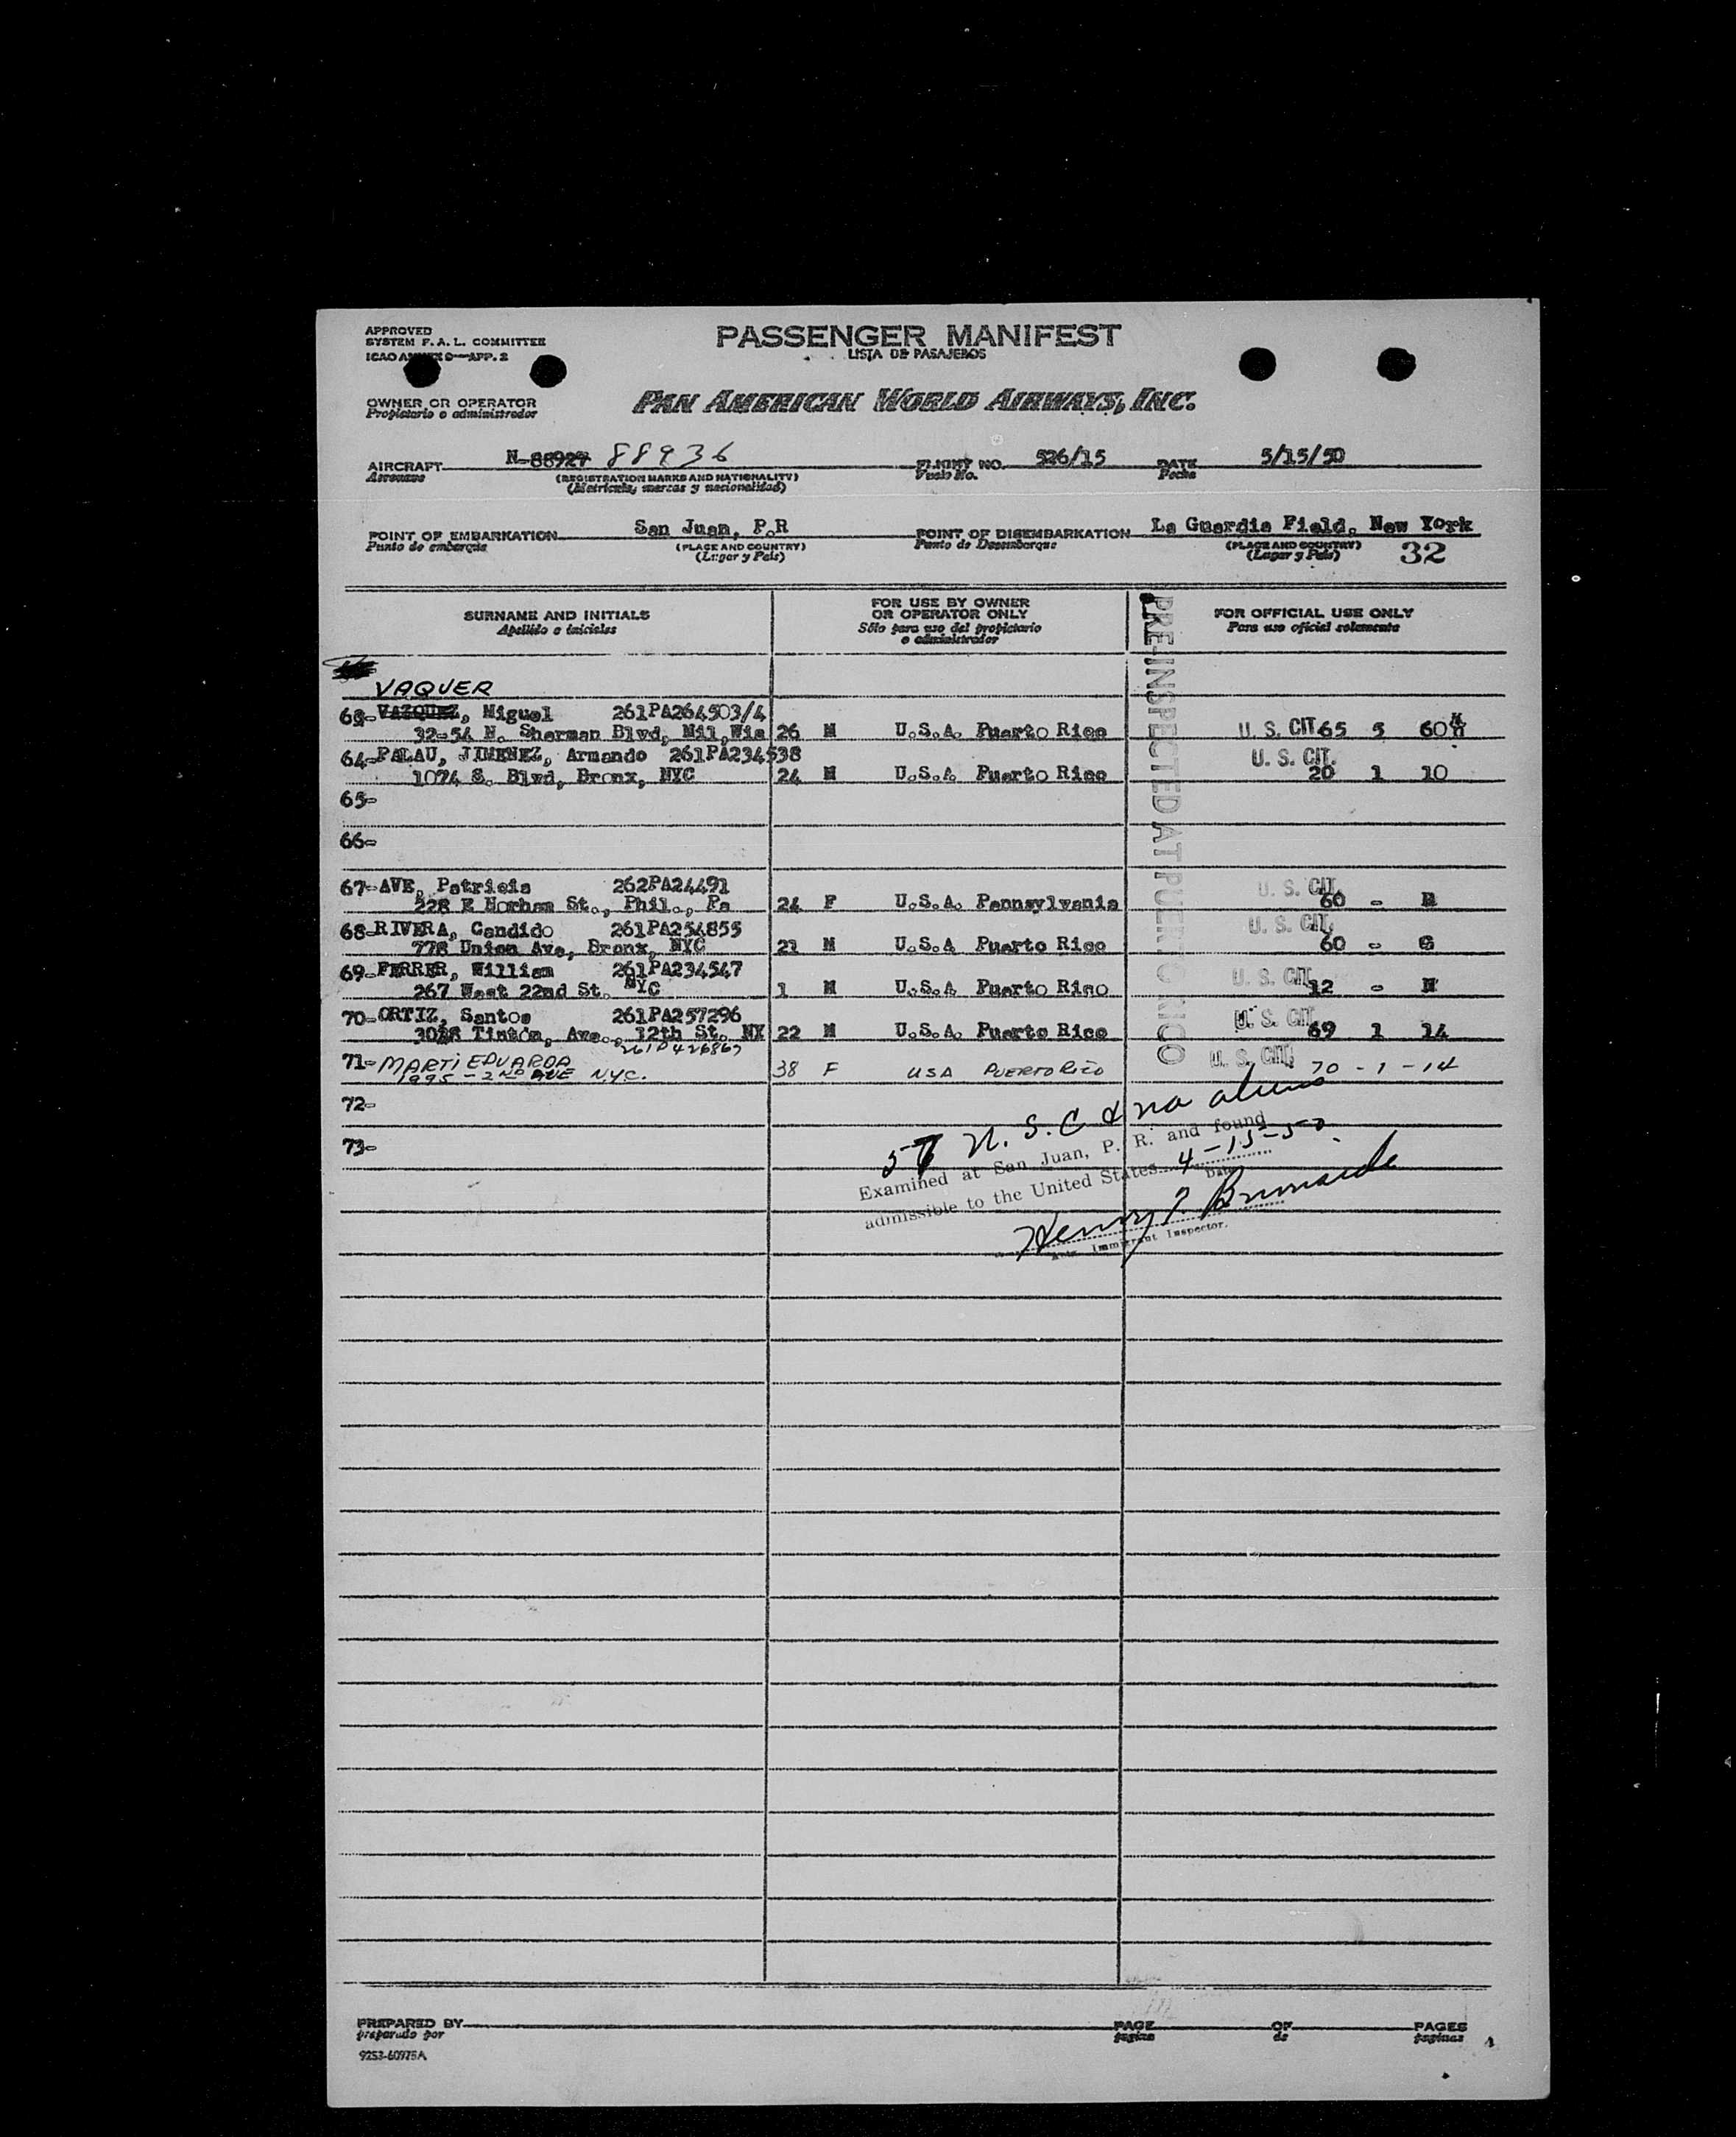 APPROVED
SYSTEM F. A. L. COMMITTEE
ICAO ANNEX 9—APP. 2
PASSENGER MANIFEST
LISTA DE PASAJEROS
OWNER OR OPERATOR
Propietario o administrador
PAN AMERICAN WORLD AIRWAYS, INC.
AIRCRAFT N-88927 88936 FLIGHT NO. 526/15 DATE 5/15/50
Aeronave (REGISTRATION MARKS AND NATIONALITY) Vuelo No. Fecha
(Matricula, marcas y nacionalidad)
POINT OF EMBARKATION San Juan, P.R POINT OF DISEMBARKATION La Guardia Field, New York
Punto de embarque (PLACE AND COUNTRY) Punto de Desembarque (PLACE AND COUNTRY)
(Lugar y País) (Lugar y País) 32
SURNAME AND INITIALS FOR USE BY OWNER OR OPERATOR ONLY FOR OFFICIAL USE ONLY
Apellido e iniciales Sólo para uso del propietario o administrador Para uso oficial solamente
PRE-INSPECTED AT PUERTO RICO
VAQUER
63-VAZQUEZ, Miguel 261PA264503/4
32-54 N. Sherman Blvd, Mil,Wis 26 M U.S.A. Puerto Rico U. S. CIT. 65 5 60
64-PALAU, JIMENEZ, Armando 261PA234538 U. S. CIT.
1074 S. Blvd, Bronx, NYC 24 M U.S.A Puerto Rico 20 1 10
65-
66-
67-AVE, Patricia 262PA24491 U. S. CIT.
228 E Horham St., Phil., Pa 24 F U.S.A. Pennsylvania 60 -
68-RIVERA, Candido 261PA254855 U. S. CIT.
778 Union Ave, Bronx, NYC 21 M U.S.A Puerto Rico 60 -
69-FERRER, William 261PA234547 U. S. CIT.
267 West 22nd St. NYC 1 M U.S.A Puerto Rico 12 -
70-ORTIZ, Santos 261PA257296 U. S. CIT.
Tinton, Ave., 12th St. NY 22 M U.S.A. Puerto Rico 69 1 14
71-MARTI EDUARDA U. S. CIT.
1995 - 2ND AVE N.Y.C. 38 F USA PUERTO RICO 70 - 1 - 14
72-
73-
57 U. S. C & no aliens
Examined at San Juan, P. R. and found
admissible to the United States 4-15-50
Date
Henry
Immigrant Inspector.
PREPARED BY PAGE OF PAGES
preparado por pagina de paginas
9253-60975A